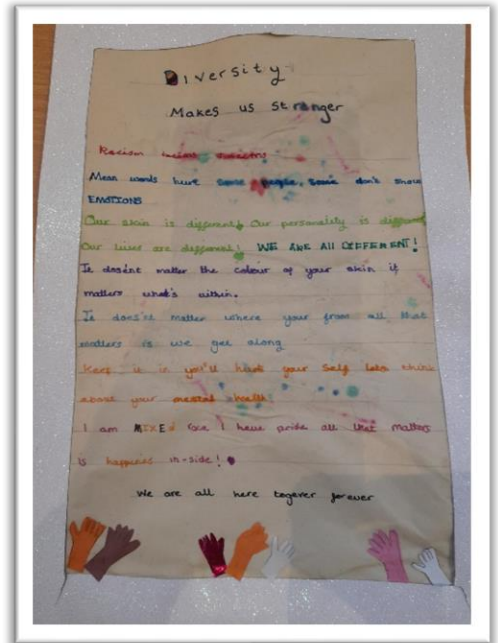 Diversity
Makes us stronger
Racism
Mean words hurt some people, some don't show
EMOTIONS
Our skin is different! Our personality is different
Our lives are different! WE ARE All DIFFERENT!
It dosent matter the colour of your skin it
matters what's within.
It does'nt matter where your from all that
matters is we get along
Keep it in you'll hurt your self lets think
about your mental health
I am MIXED race I have pride all that matters
is happines in-side!
We are all here togever forever